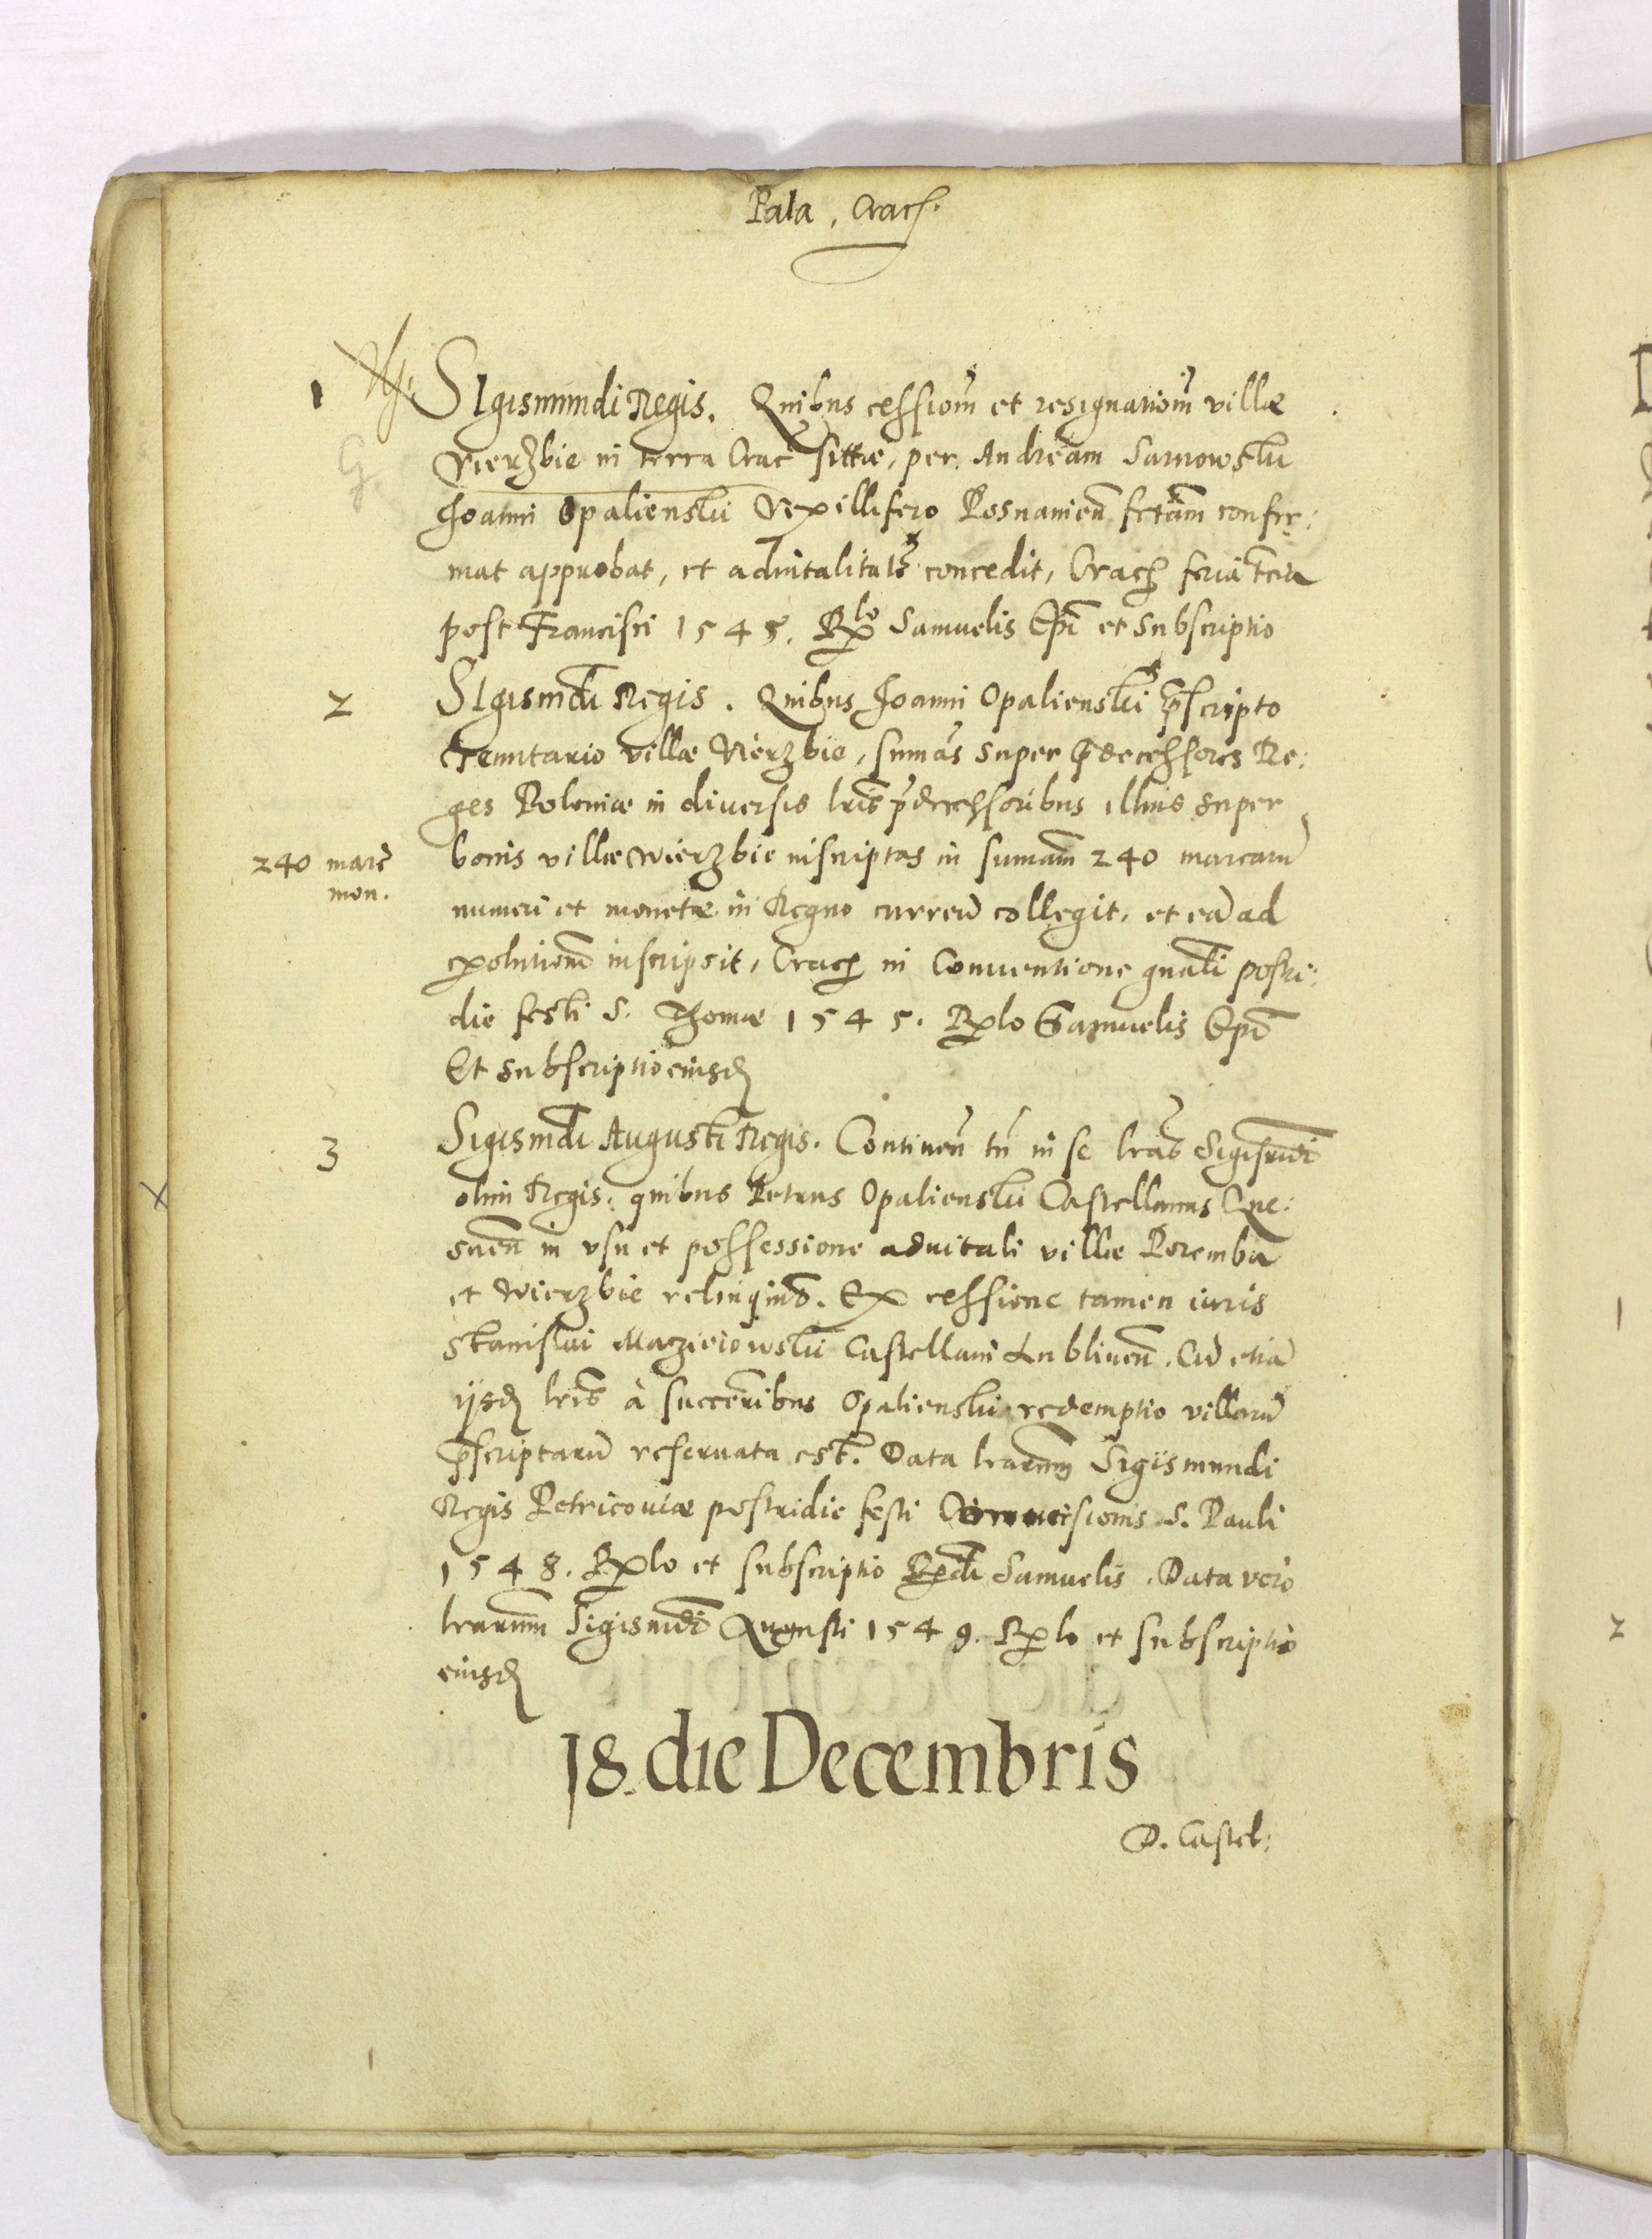 Pala. Crac.
1 SIgismundi Regis. Quibus cessiom̃ et resignatiom̃ villæ
Vierzbie in terra Crac̃ sittæ, per Andream Sarnowskij
Joanni Opalienskij Vexillifero Posnanieñ fctam confir:
mat approbat, et aduitalitat̃ concedit, Crac feria tcia
post Francisci 1545. Rlo Samuelis Epi et subscriptio
2 SIgismdi Regis. Quibus Joanni Opalienskij p̃scripto
tenutario villæ Vierzbie, sumas super p̃decessores Re:
ges Poloniæ in diuersis lris p̃decessoribus illius super
240 marc̃ mon. bonis villæ Wierzbie inscriptas in sumam 240 marcarũ
numeri et monetæ in Regno curreñ collegit, et eã ad
exolutionẽ inscripsit, Crac in Conuentione gnali postri:
die festi S. Thomæ 1545. Rlo Samuelis Epi
Et subscriptio eiusd
3 Sigismdi Augusti Regis. Contineñ tñ in se lras Sigismdi
olim Regis. quibus Petrus Opalienskij Castellanus Gne:
sneñ in vsu et possessione aduitali villæ Poremba
et Wierzbie relinquid. Ex cessione tamen iuris
Stanislai Macieiowskij Castellani Lublineñ. Cũ etiã
ijsd lris à successoribus Opalienskij redemptio villarũ
p̃scriptarũ reseruata est. Data lrarum Sigismundi
Regis Petricouiæ postridie festi Conuersionis S. Pauli
1548. Rlo et subscriptio Rndi Samuelis. Data vero
lrarum Sigismdi Augusti 1549. Rlo et subscriptio
eiusd
18. die Decembris
D. Castel: